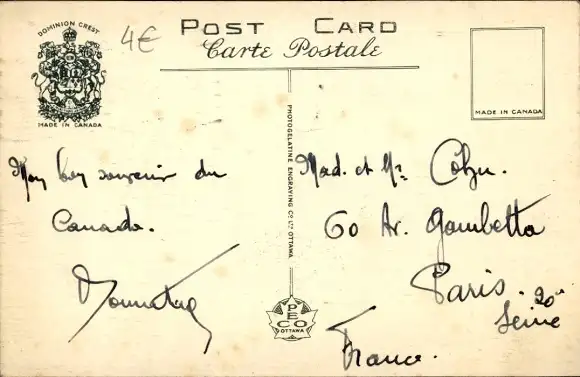 DOMINION CREST
MADE IN CANADA
4€
POST CARD
Carte Postale
MADE IN CANADA
PHOTOGELATINE ENGRAVING CO. LTD. OTTAWA
PECO
OTTAWA
souvenir du
Canada.
Mad. et Mr.
60 Av. Gambetta
Paris. 20
Seine
France.